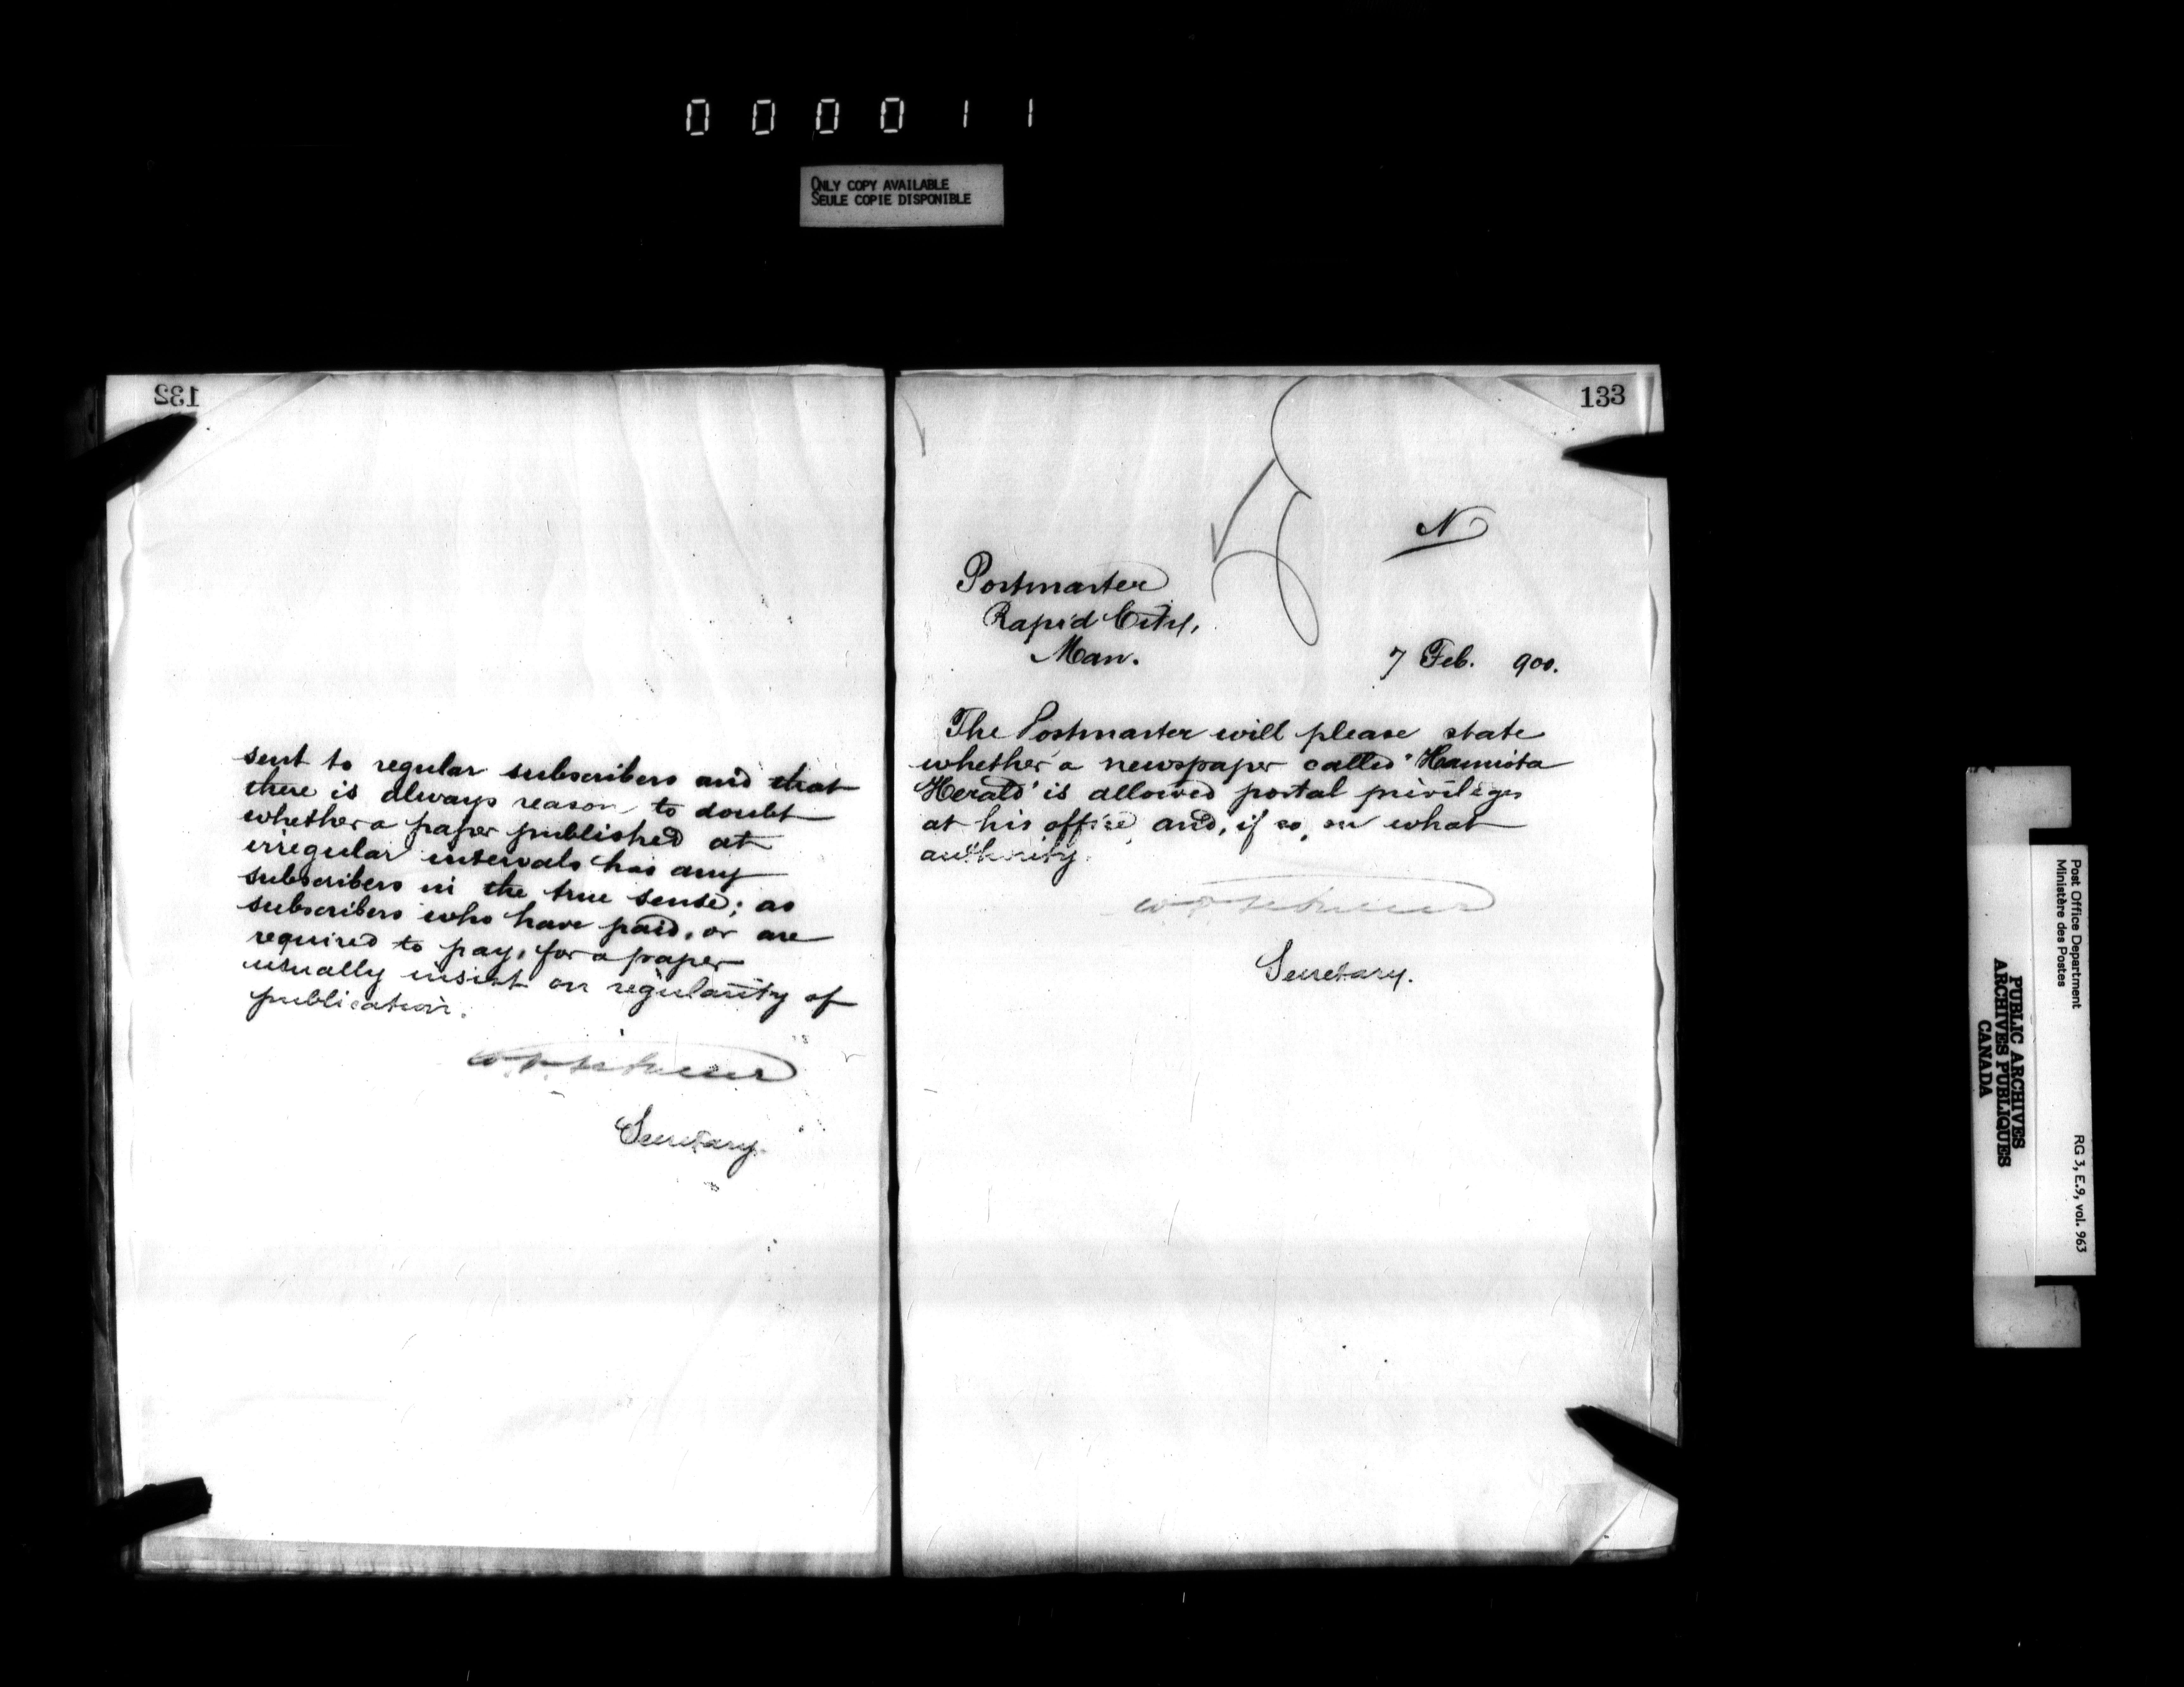 000011
ONLY COPY AVAILABLE
SEULE COPIE DISPONIBLE
132
sent to regular subscribers and that
there is always reason to doubt
whether a paper published at
irregular intervals has any
subscribers in the true sense; as
subscribers who have paid, or are
required to pay, for a paper
usually insist on regularity of
publication.
Secretary.
133
N
Postmaster
Rapid City,
Man.
7 Feb. 900.
The Postmaster will please state
whether a newspaper called "Hamiota
Herald" is allowed postal privileges
at his office and, if so, on what
authority.
Secretary.
Post Office Department
Ministère des Postes
RG 3, E.9, vol. 963
PUBLIC ARCHIVES
ARCHIVES PUBLIQUES
CANADA